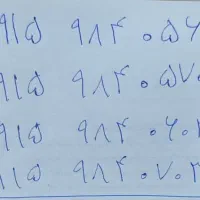 ۹۱۵ ۹۸۴۰۵۶
۹۱۵ ۹۸۴۰۵۷۰
۹۱۵ ۹۸۴۰۶۰
۹۱۵ ۹۸۴۰۷۰